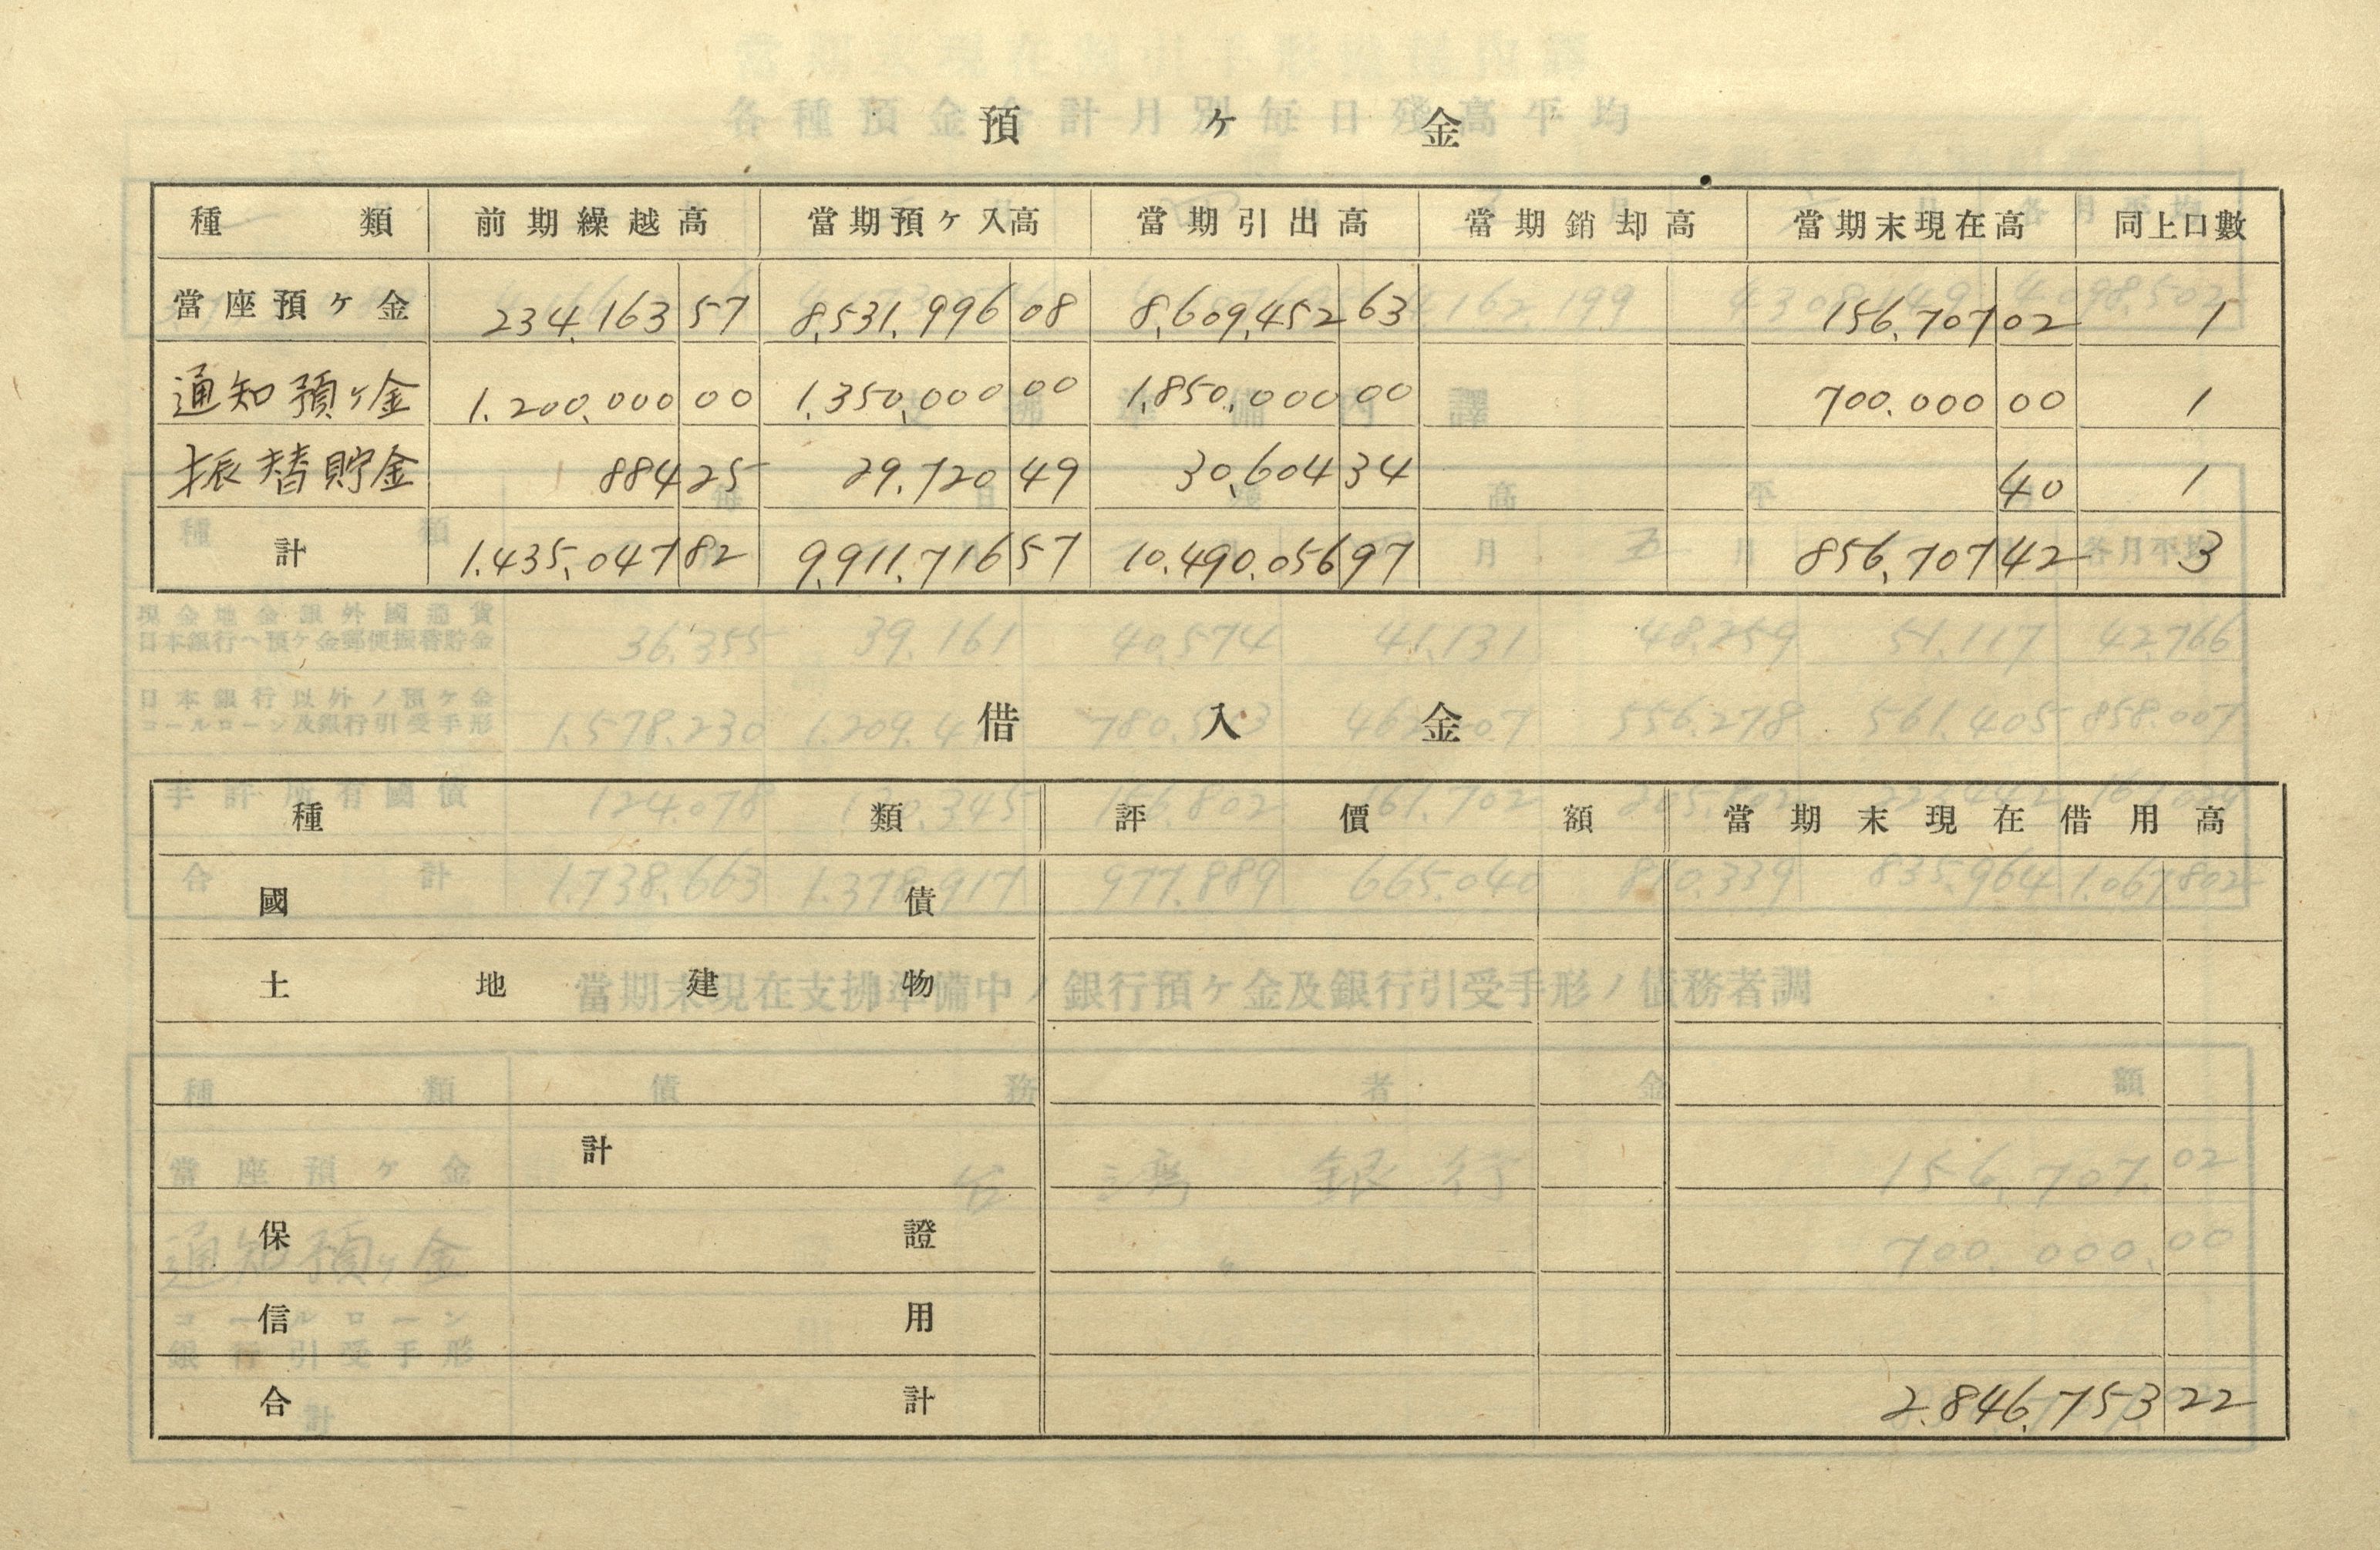 預ヶ金
種類 前期繰越高 當期預ヶ入高 當期引出高 當期銷却高 當期末現在高 同上口數
當座預ヶ金 234,163 57 8,531,996 08 8,609,452 63 156,707 02 1
通知預ヶ金 1,200,000 00 1,350,000 00 1,850,000 00 700,000 00 1
振替貯金 884 25 29,720 49 30,604 34 40 1
計 1,435,047 82 9,911,716 57 10,490,056 97 856,707 42 3
借入金
種類 評價額 當期末現在借用高
國債
土地建物
計
保證
信用
合計 2,846,753 22